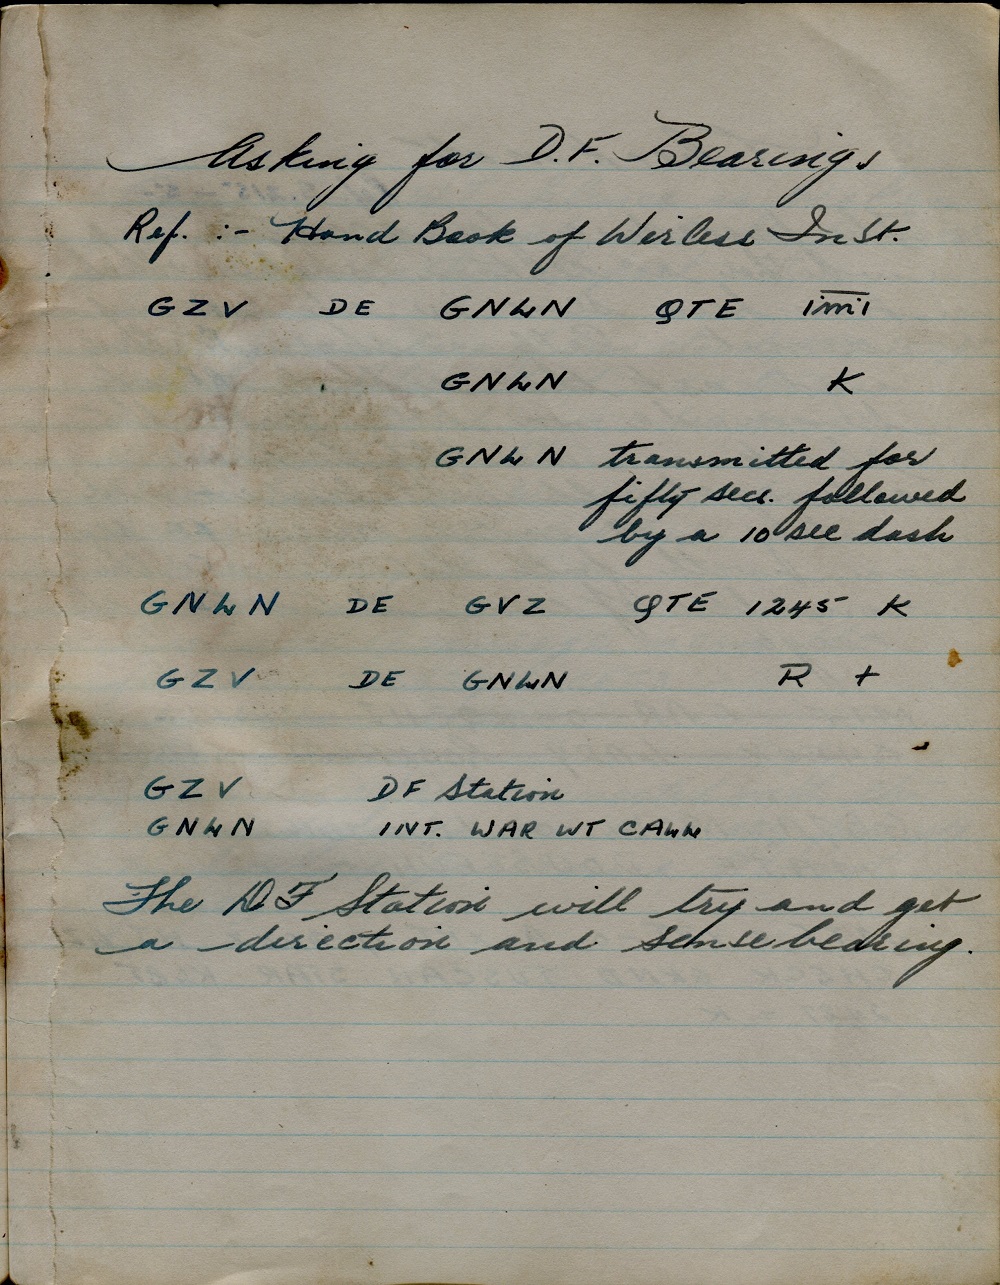 Asking for D.F. Bearings
Ref. :- Hand Book of Wirless Inst.
GZV DE GNLN QTE imi
GNLN K
GNLN transmitted for
fifty secs. followed
by a 10 sec dash
GNLN DE GVZ QTE 1245 K
GZV DE GNLN R +
GZV DF Station
GNLN INT. WAR WT CALL
The DF Station will try and get
a direction and sense bearing.